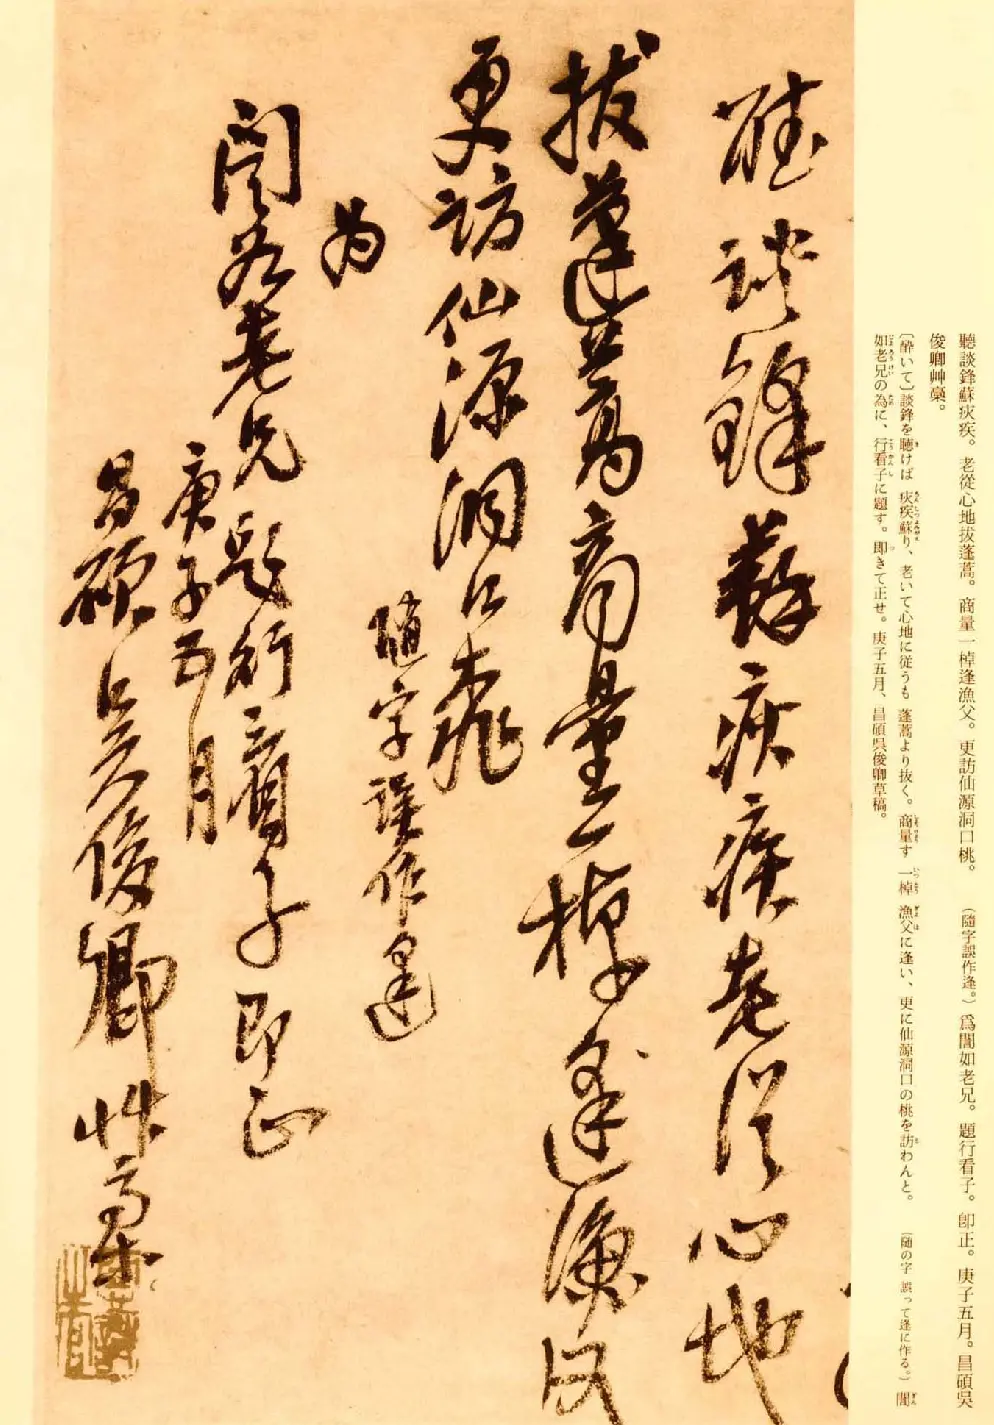 聽談鋒蘇疢疾。老從心地拔蓬蒿。商量一棹逢漁父。更訪仙源洞口桃。　（隨字誤作逢。）爲闇如老兄。題行看子。卽正。庚子五月。昌碩吳
俊卿艸稾。
〔酔いて〕談鋒を聴けば　疢疾蘇り、老いて心地に従うも　蓬蒿より抜く。商量す　一棹　漁父に逢い、更に仙源洞口の桃を訪わんと。　〔随の字　誤って逢に作る。〕　闇
如老兄の為に、行看子に題す。即きて正せ。庚子五月、昌碩呉俊卿草稿。
聽談鋒蘇疢疾老從心地
拔蓬蒿商量一棹逢漁父
更訪仙源洞口桃
隨字誤作逢
為
闇如老兄題行看子即正
庚子五月
昌碩吳俊卿艸稾